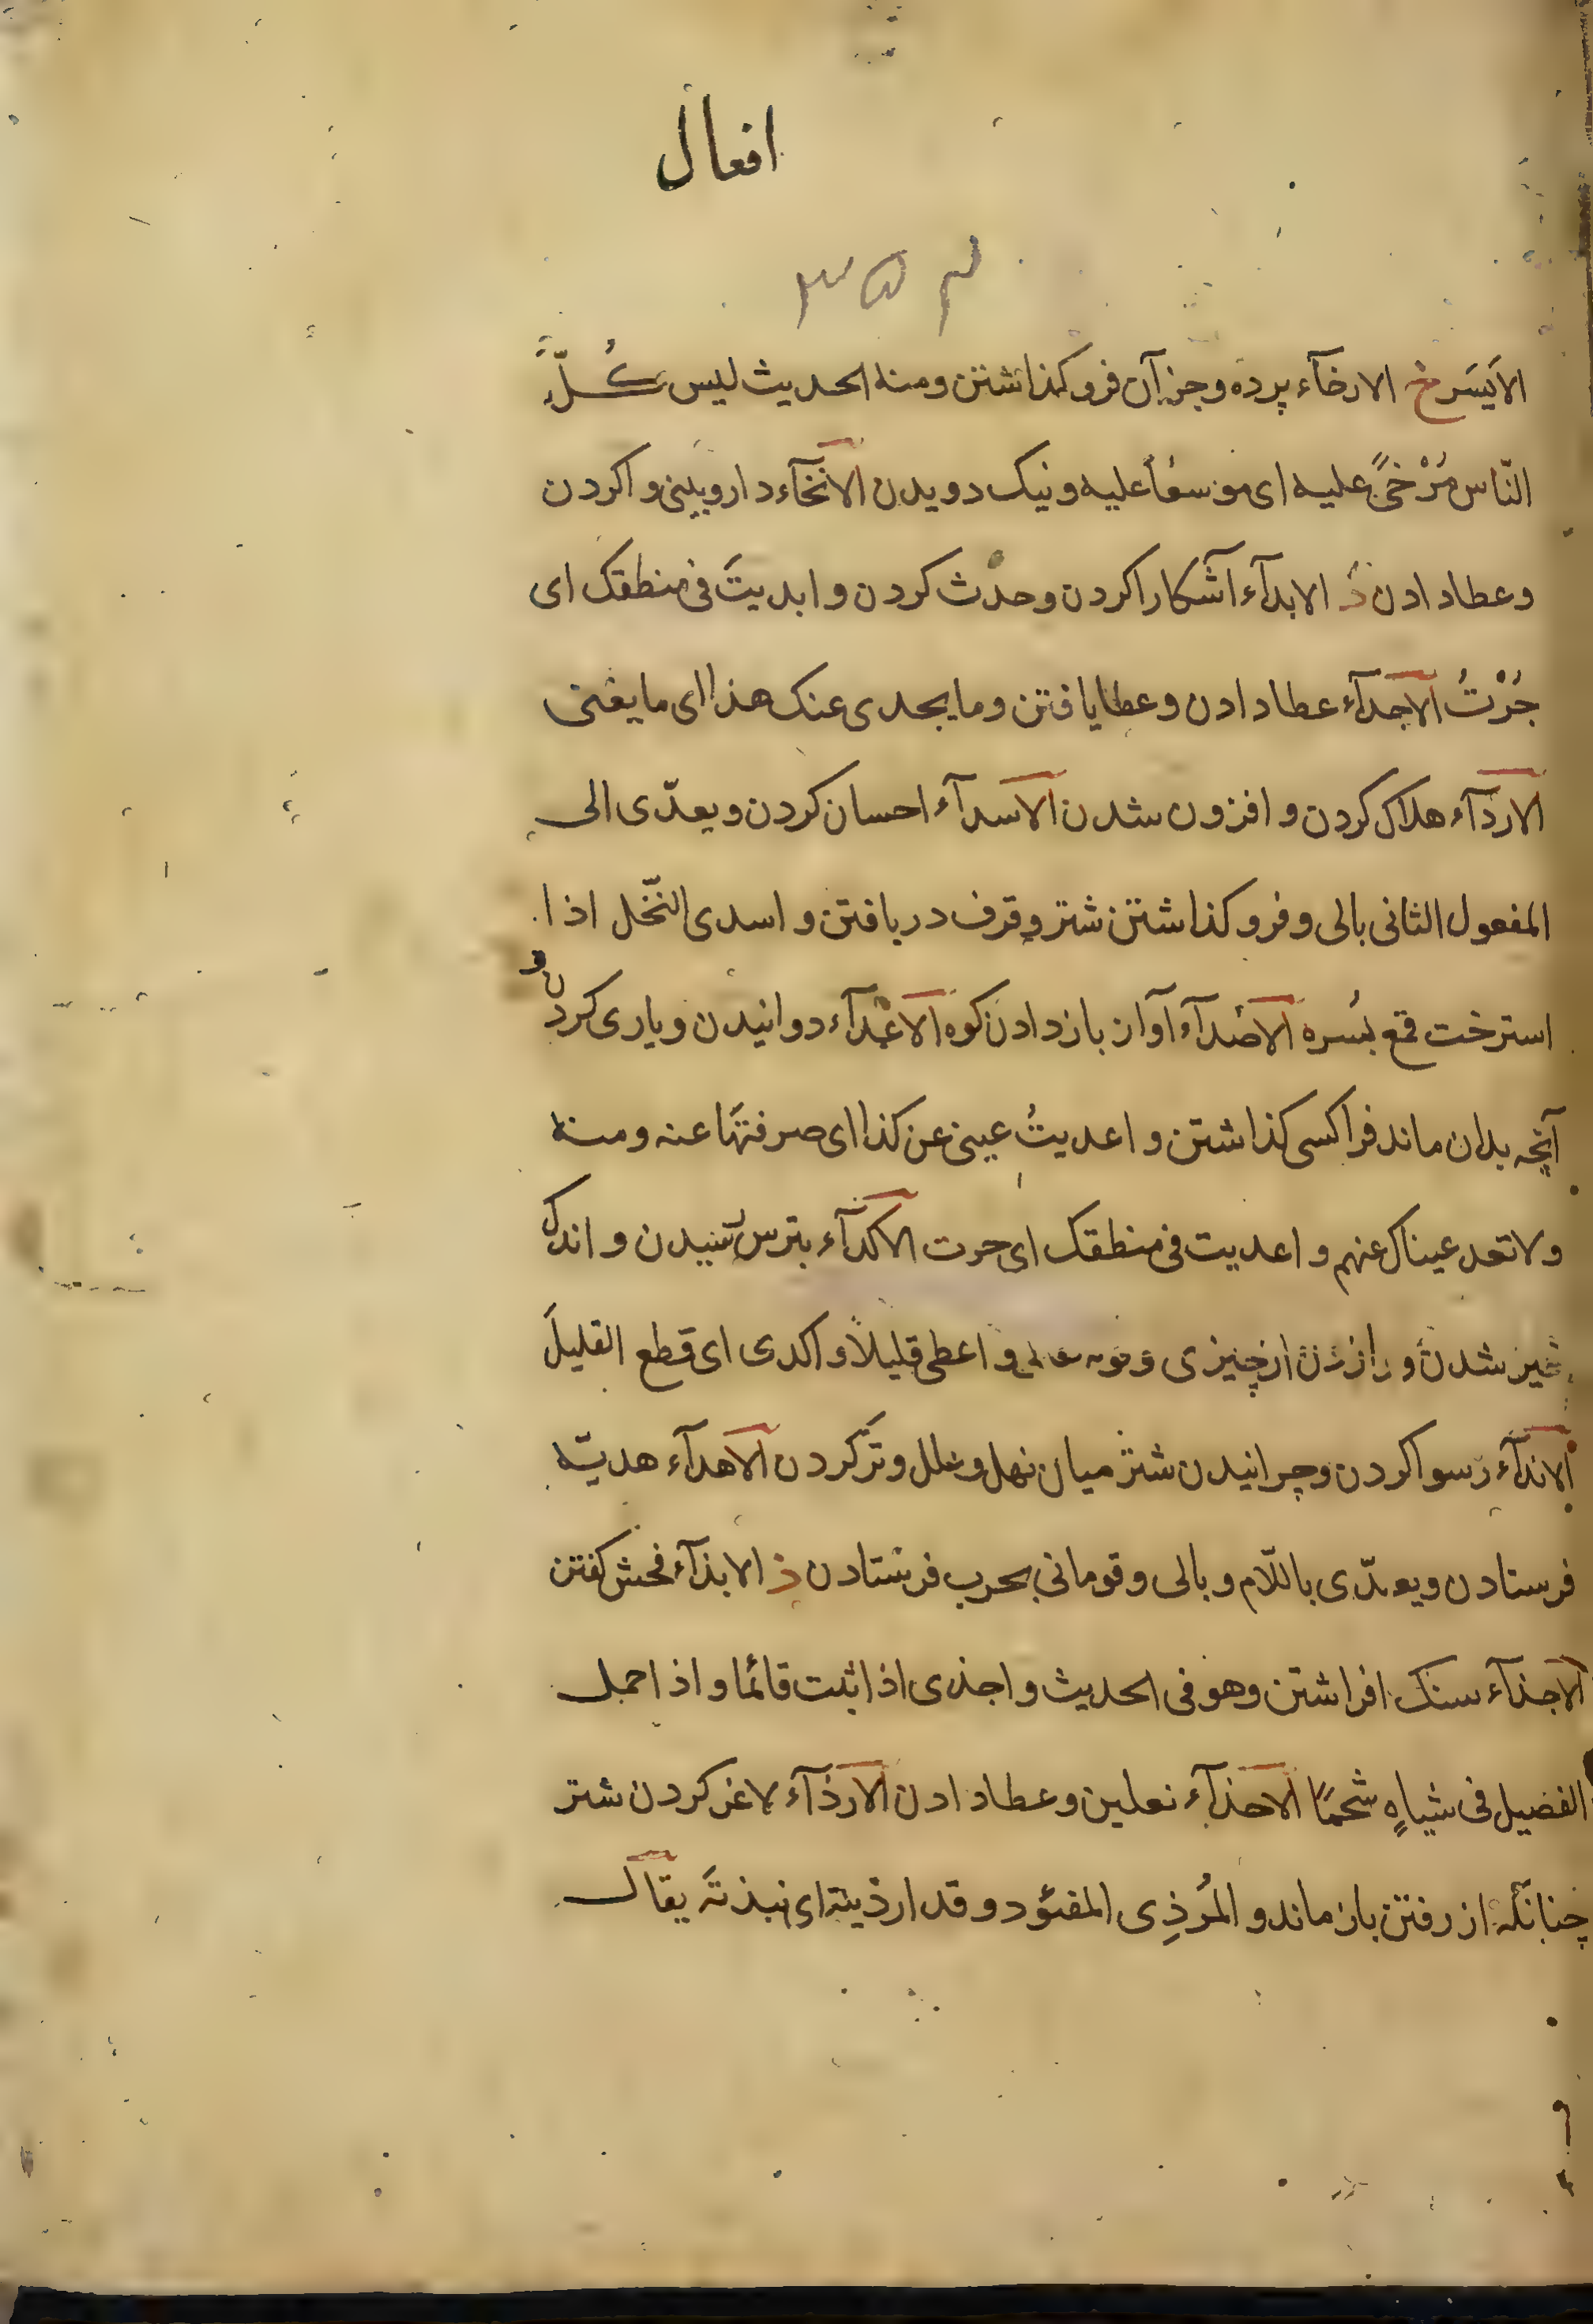 افعال
۳۵۳
الاَیسَر خ الارخآء پرده وجز آن فرو کذاشتن ومنه الحدیث لیس کُلُّ
النّاس مُرْخیً علیه ای موسعًا علیه ونیک دویدن الانخآء دارو ببینی واکردن
وعطا دادن د الابدآء آشکارا کردن وحدث کردن وابدیتَ فی منطقک ای
جُرْتُ الاجدآء عطا دادن وعطا یافتن وما یجدی عنک هذا ای ما یغنی
الاردآء هلاک کردن وافزون شدن الاسدآء احسان کردن ویعدّی الی
المفعول الثانی بالی وفرو کذاشتن شتر وقرف دریافتن واسدی النّخل اذا
استرخت قمع بُسره الاصدآء آواز باز دادن کوه الاعْدآء دوانیدن ویاری کردن و
آنچه بدان ماند فرا کسی کذاشتن واعدیتُ عینی عن کذا ای صرفتهَا عنه ومنه
ولا تعد عیناک عنهم واعدیت فی منطقک ای جرت الاکدآء بترس رسیدن واندک
خیز شدن و از چیزی و واعطی قلیلاً واکدی ای قطع القلیلَ
الاندآء رسوا کردن وچرانیدن شتر میان نهل وعلل وتَر کردن الاهدآء هدیّه
فرستادن ویعدّی باللّام وبالی وقومانی بحرب فرستادن ذ الابذآء فحش کفتن
الاجذآء سنک افراشتن وهو فی الحدیث واجذی اذا ثبت قائما واذا حمل
الفصیل فی شیاهٍ شحمًا الاحذآء نعلین وعطا دادن الارذآء لاغر کردن شتر
چنانکه از رفتن باز ماند والمُرذِی المفئود وقد ارذیته ای نبذتَه یقال